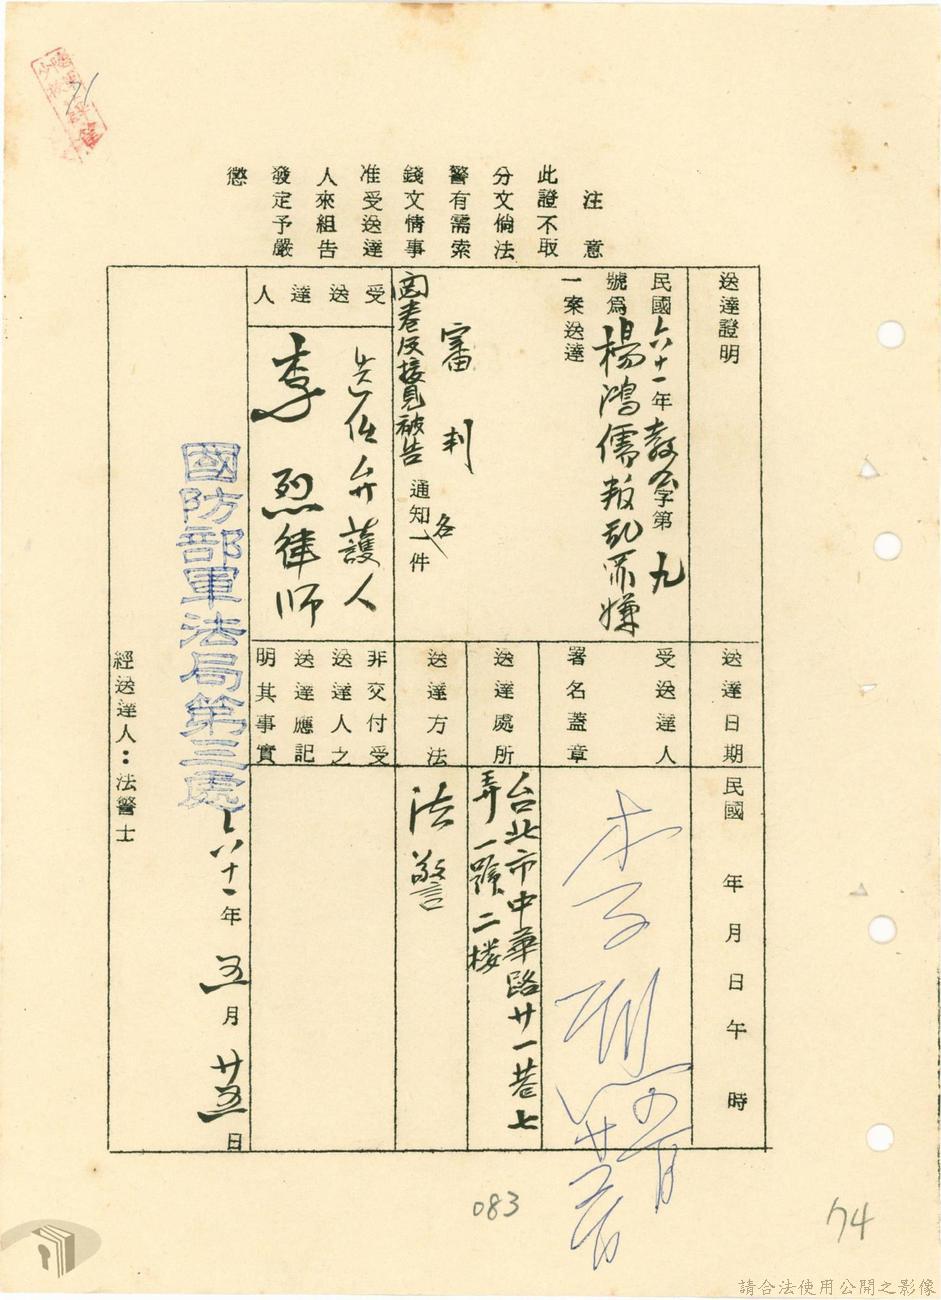 注意
此證不取
分文倘法
警有需索
錢文情事
准受送達
人來組告
發定予嚴
懲
送達證明
民國六十一年 字第九
號為楊鴻儒叛乱罪嫌
一案送達
審判
閱卷及接見被告通知各一件
受送達人
選任弁護人
李烈律师
送達日期
民國 年 月 日 午 時
受送達人
署名蓋章
李
送達處所
台北市中華路廿一巷七
弄一號二楼
送達方法
法警
非交付受
送達人之
送達應記
明其事實
國防部軍法局第三處
六十一年五月廿五日
經送達人：法警士
71
083
74
請合法使用公開之影像